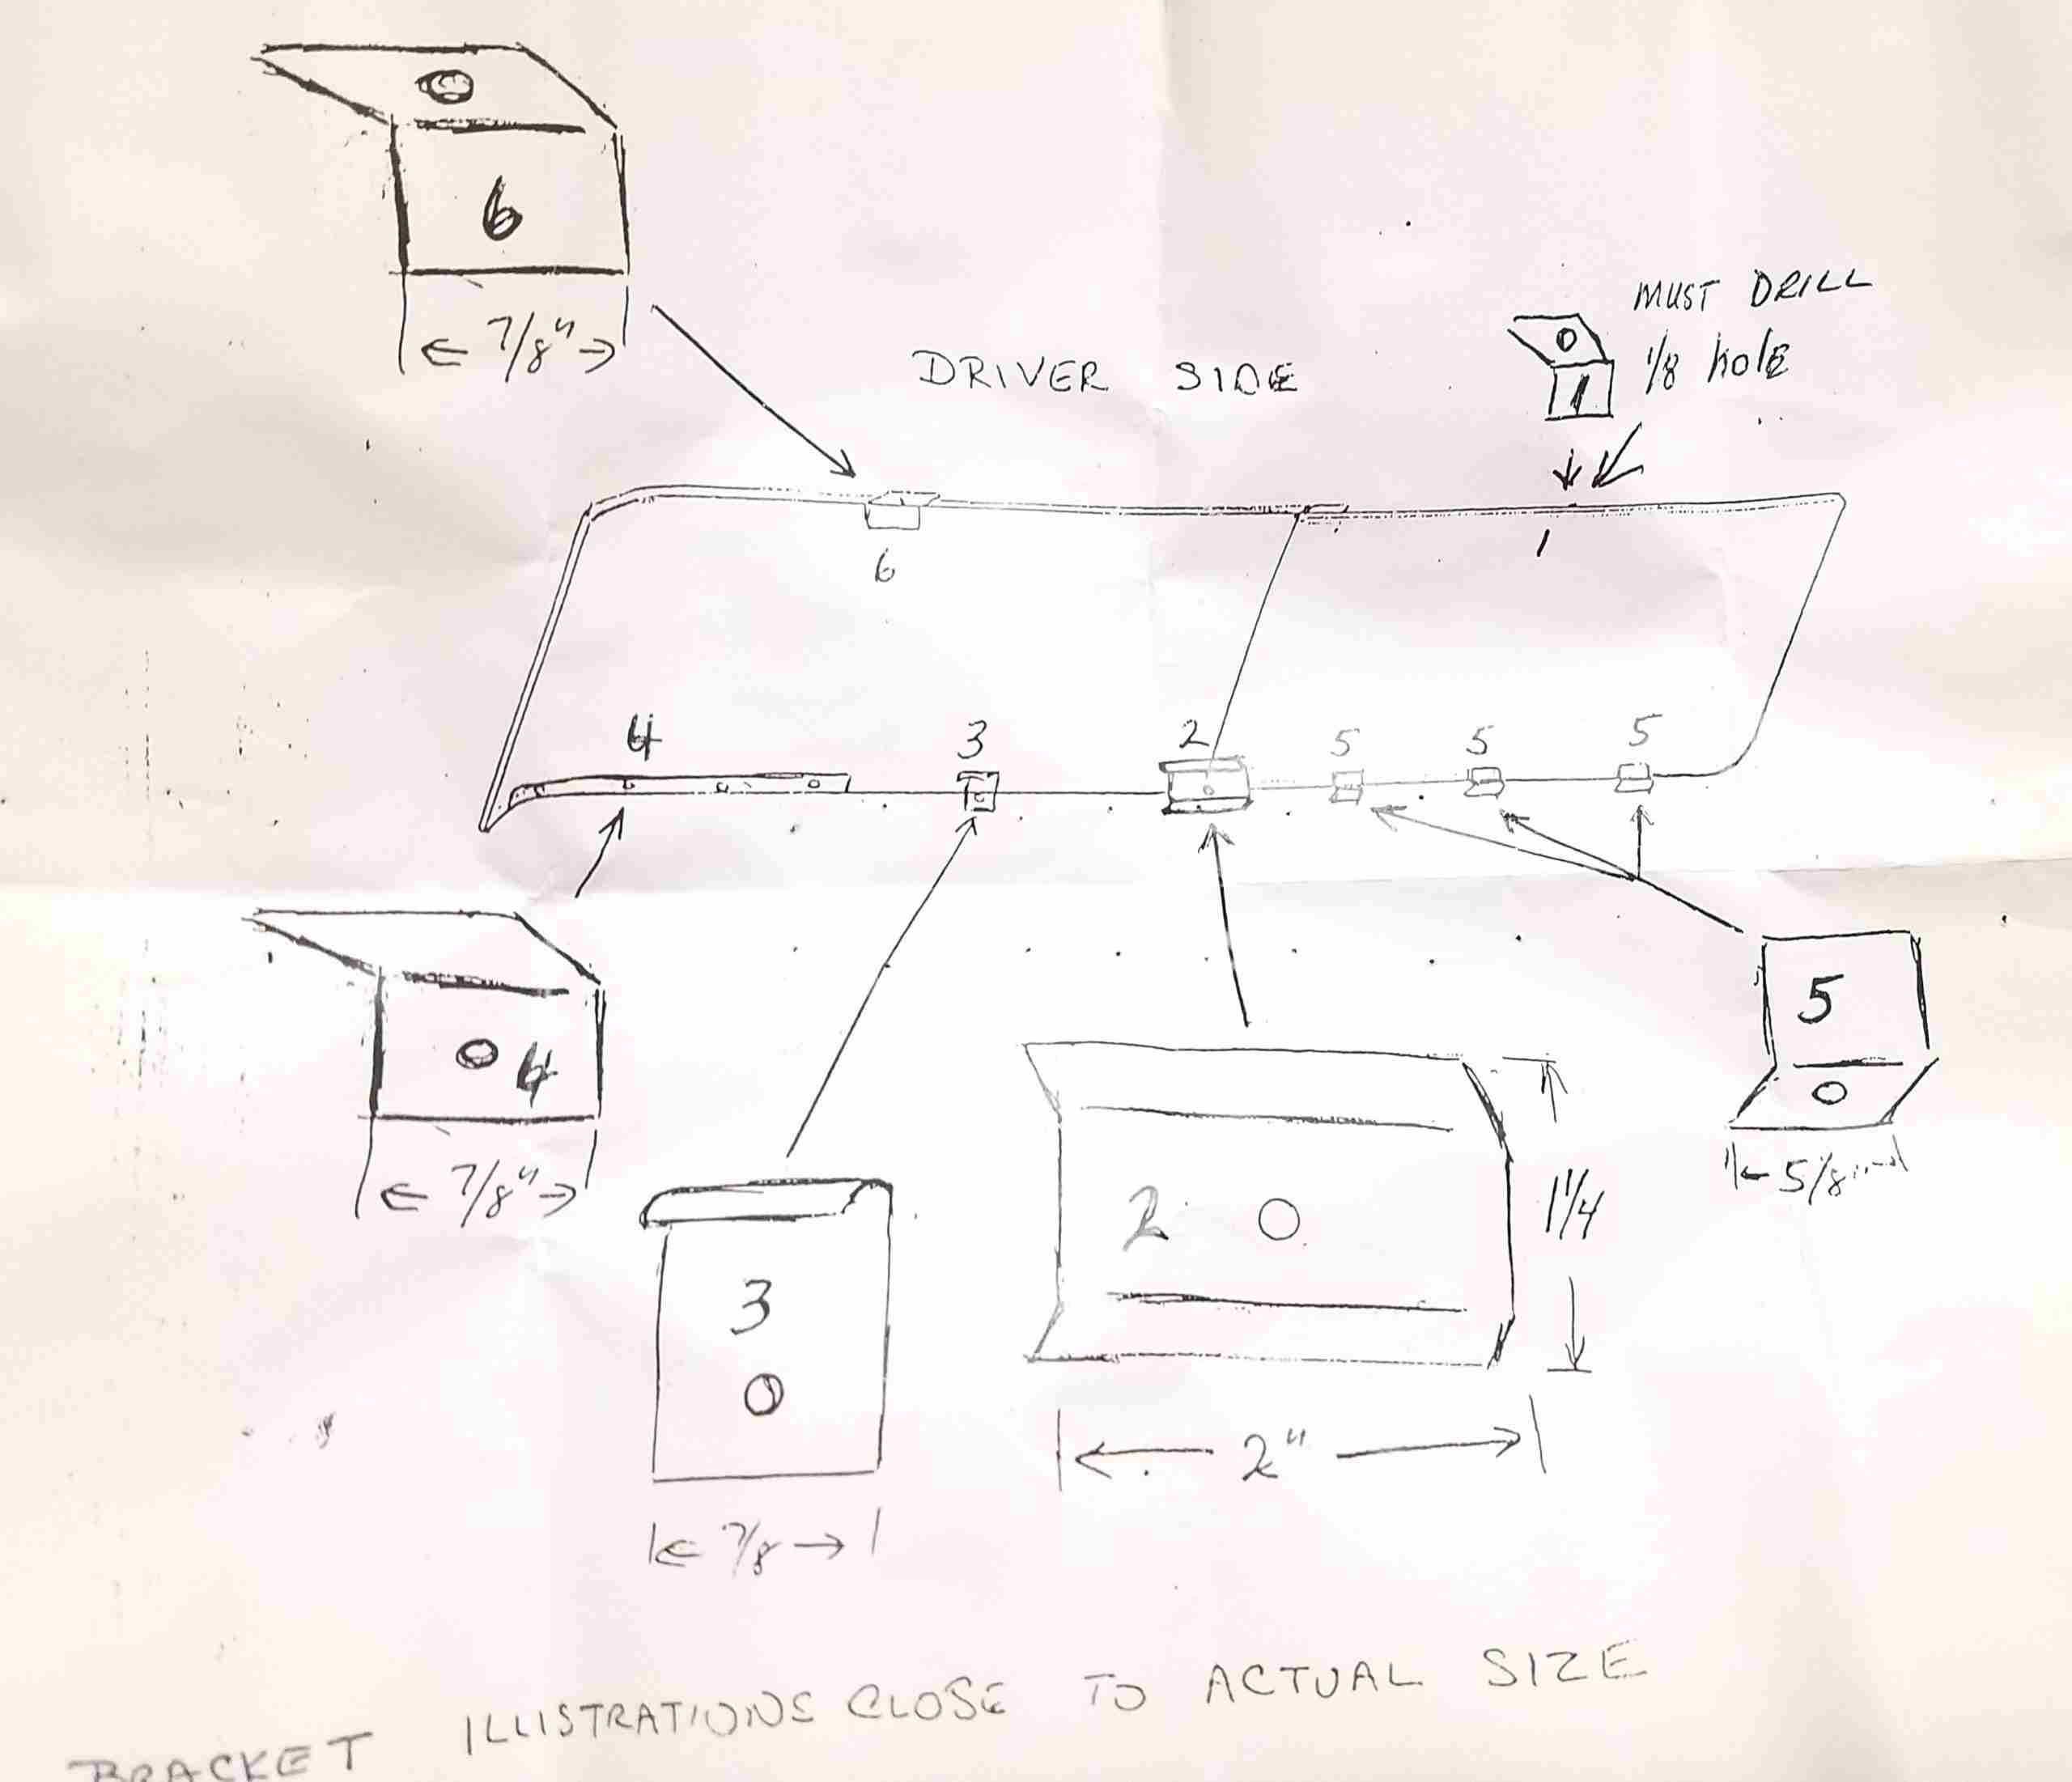 6
7/8"
DRIVER SIDE
MUST DRILL
1/8 hole
1
6
1
4
3
2
5
5
5
4
7/8"
3
7/8
2
1 1/4
2"
5
5/8"
BRACKET ILLISTRATIONS CLOSE TO ACTUAL SIZE